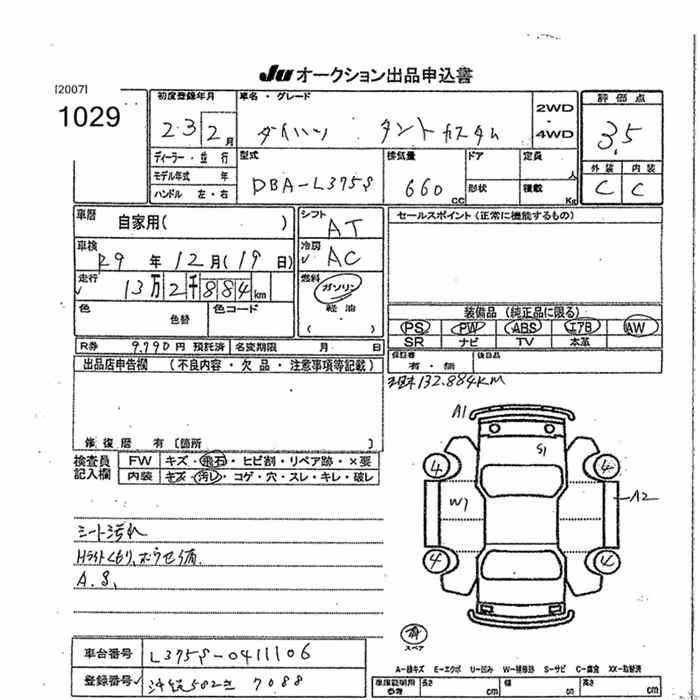 Ju オークション出品申込書
[2007]
1029
初度登録年月 車名・グレード 2WD・4WD 評価点
23 2月 ダイハツ タントカスタム 3.5
ディーラー・並行 型式 排気量 ドア 定員 人 外装 内装
モデル年式 年 DBA-L375S 660cc C C
ハンドル 左・右 形状 積載 Kg
車歴 自家用( ) シフト AT セールスポイント(正常に機能するもの)
車検 29年12月(19日) 冷房 AC
走行 13万2千884km 燃料 ガソリン
色 色替 色コード 軽油
( )
装備品 (純正品に限る)
PS PW ABS エアB AW
SR ナビ TV 本革
R券 9,790円 預託済 名変期限 月 日 保証書 有・無 後日品
出品店申告欄 (不良内容・欠品・注意事項等記載)
132.884KM
A1
S1
修復歴 有 [箇所 ]
検査員記入欄 FW キズ・飛石・ヒビ割・リペア跡・×要
内装 キズ・汚レ・コゲ・穴・スレ・キレ・破レ
4 4
W1 A2
シート汚れ
Hライトくもり、
4 4
A.S,
スペア
A-線キズ E-エクボ U-凹み W-補修跡 S-サビ C-腐食 XX-取替済
車台番号 L375S-0411106
登録番号 582 7088
車庫証明用参考 長さ cm 幅 cm 高さ cm